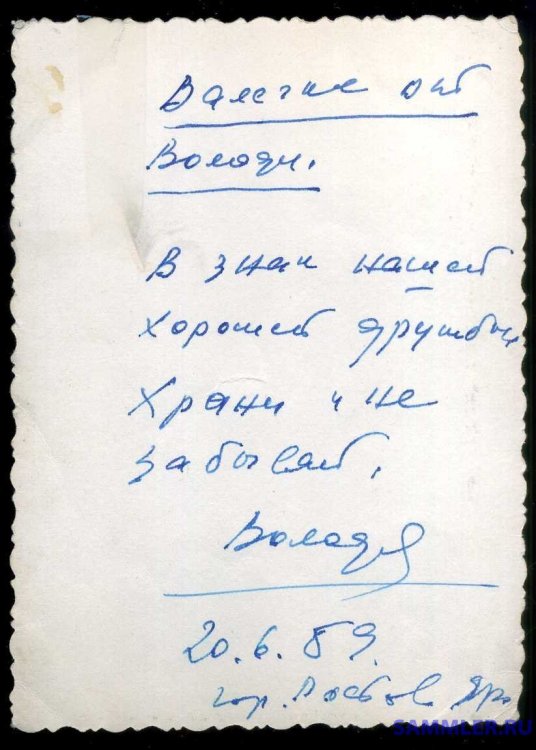 Валечке от
Володи.
В знак нашей
хорошей дружбы
Храни и не
забывай.
Володя
20.6.59.
гор. Ростов Яр.
SAMMLER.RU